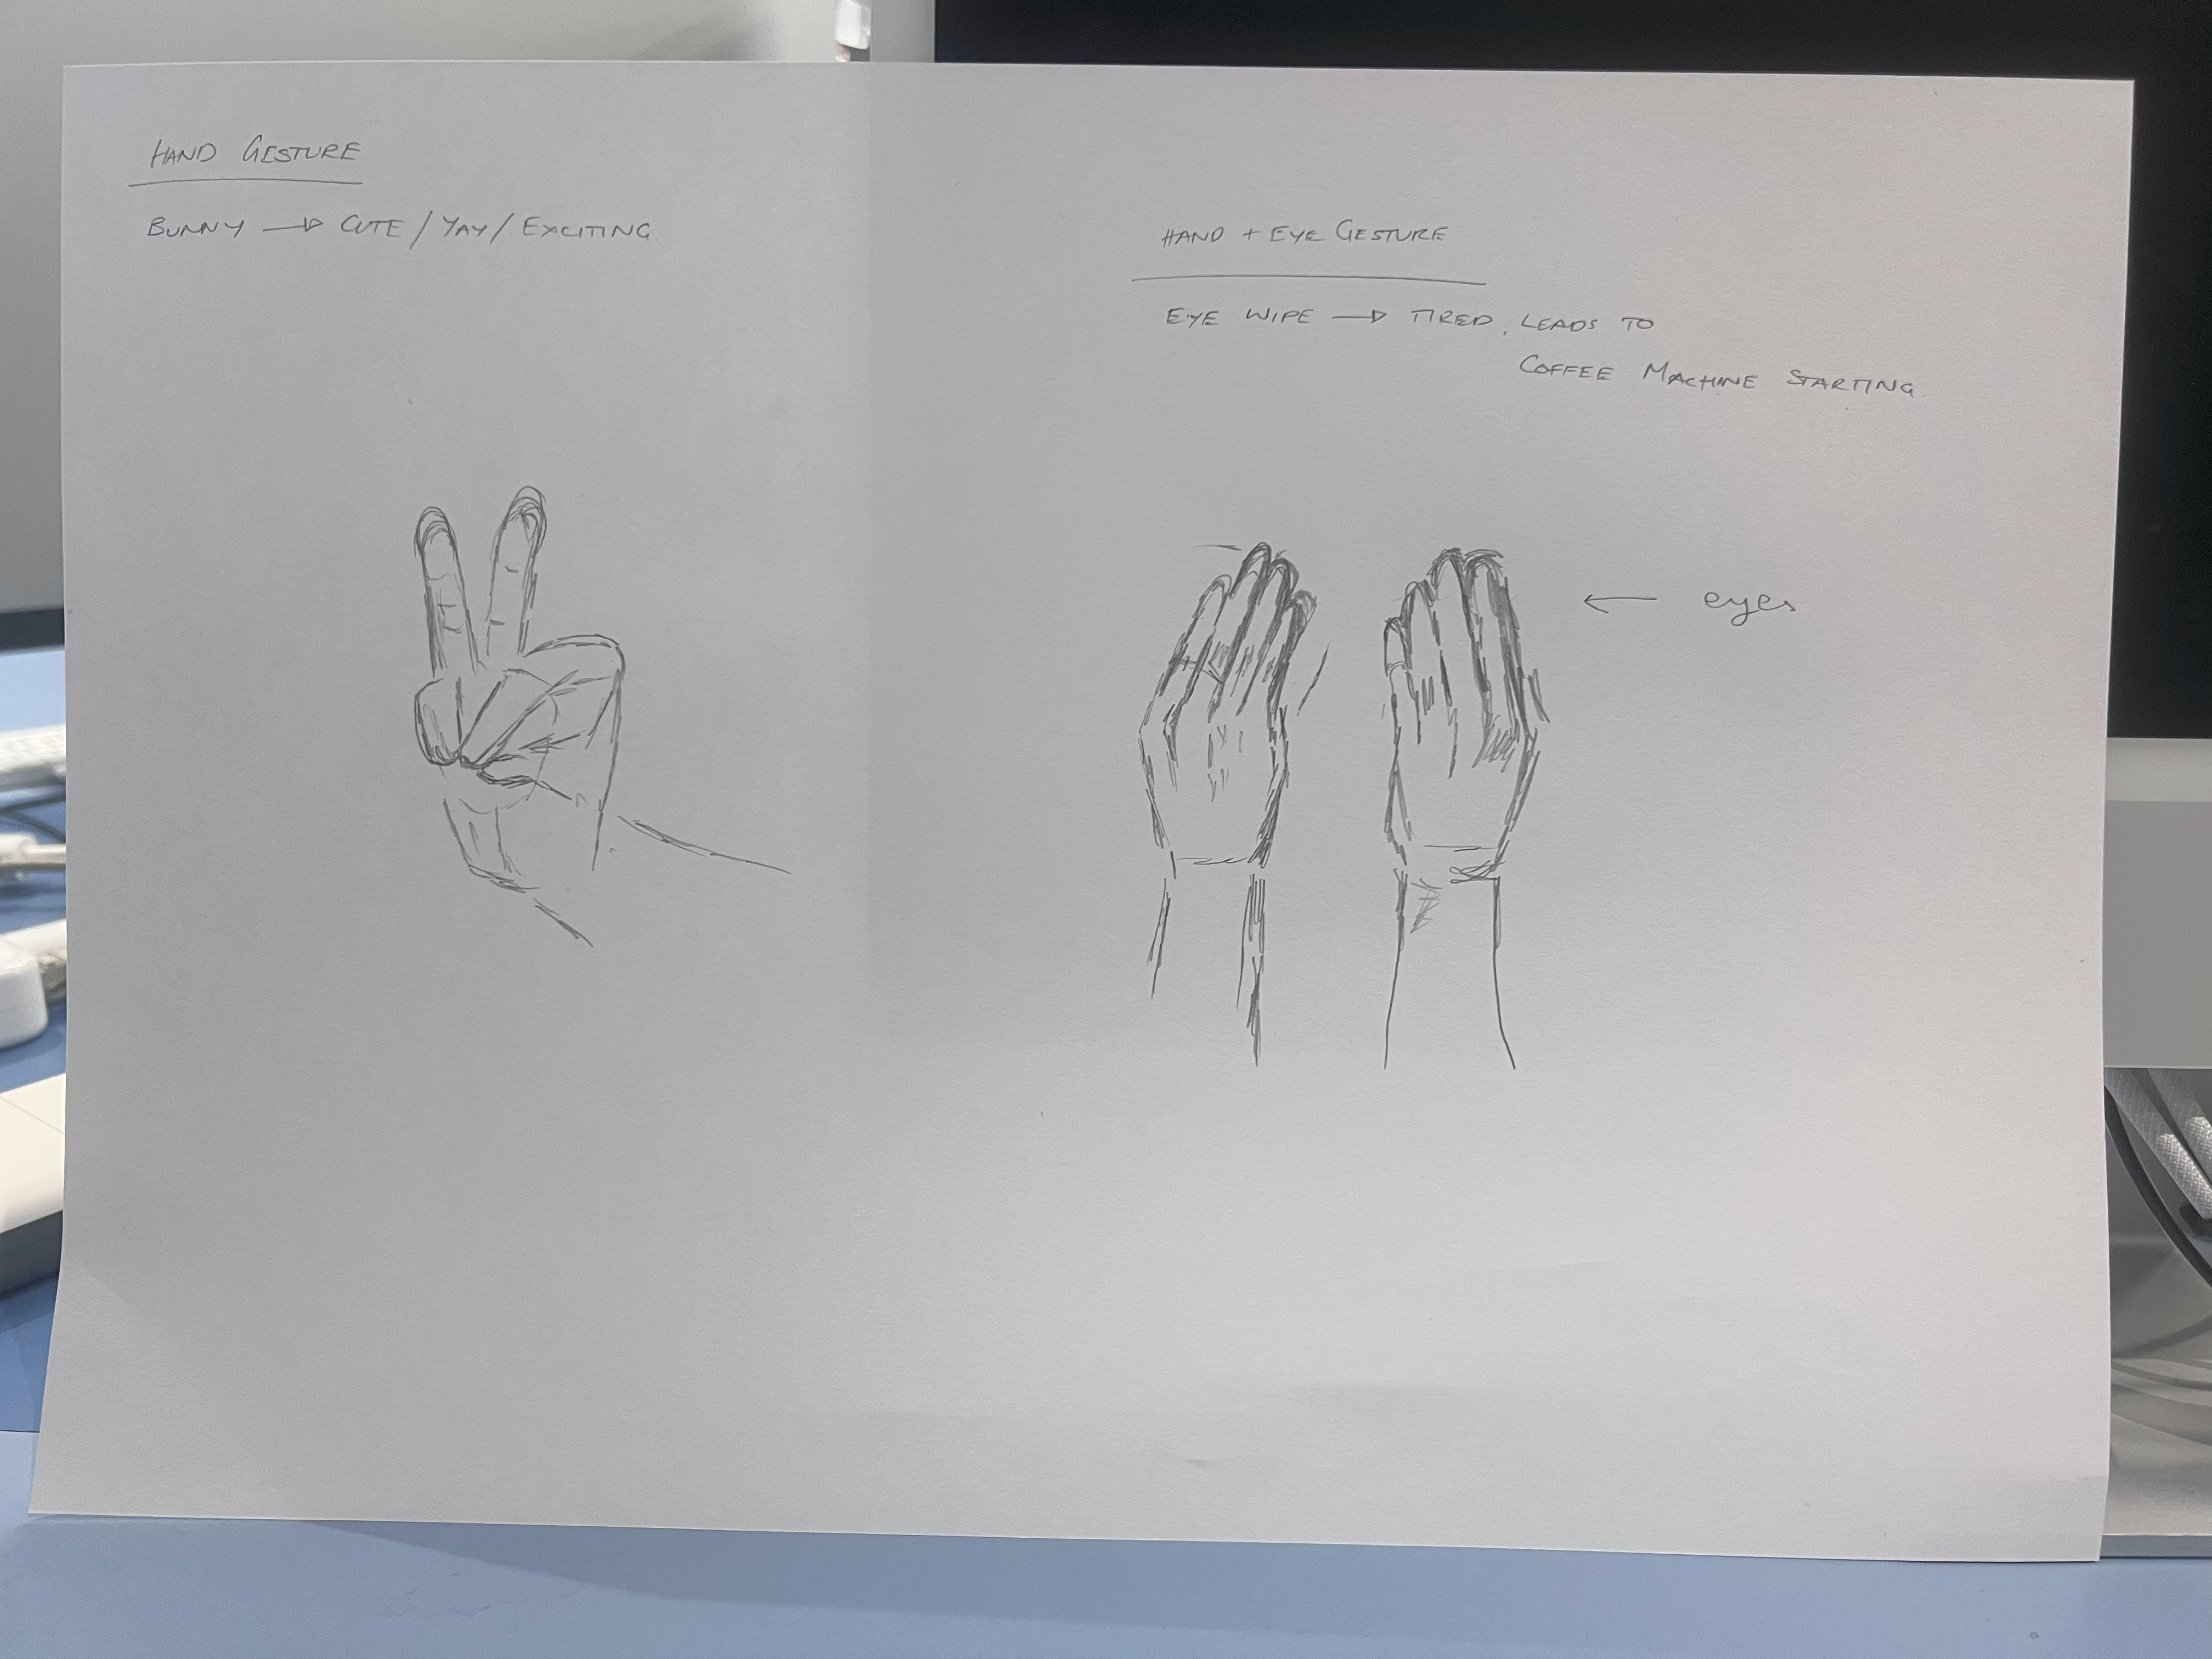 HAND GESTURE
BUNNY → CUTE / YAY / EXCITING
HAND + EYE GESTURE
EYE WIPE → TIRED, LEADS TO
COFFEE MACHINE STARTING
← eyes